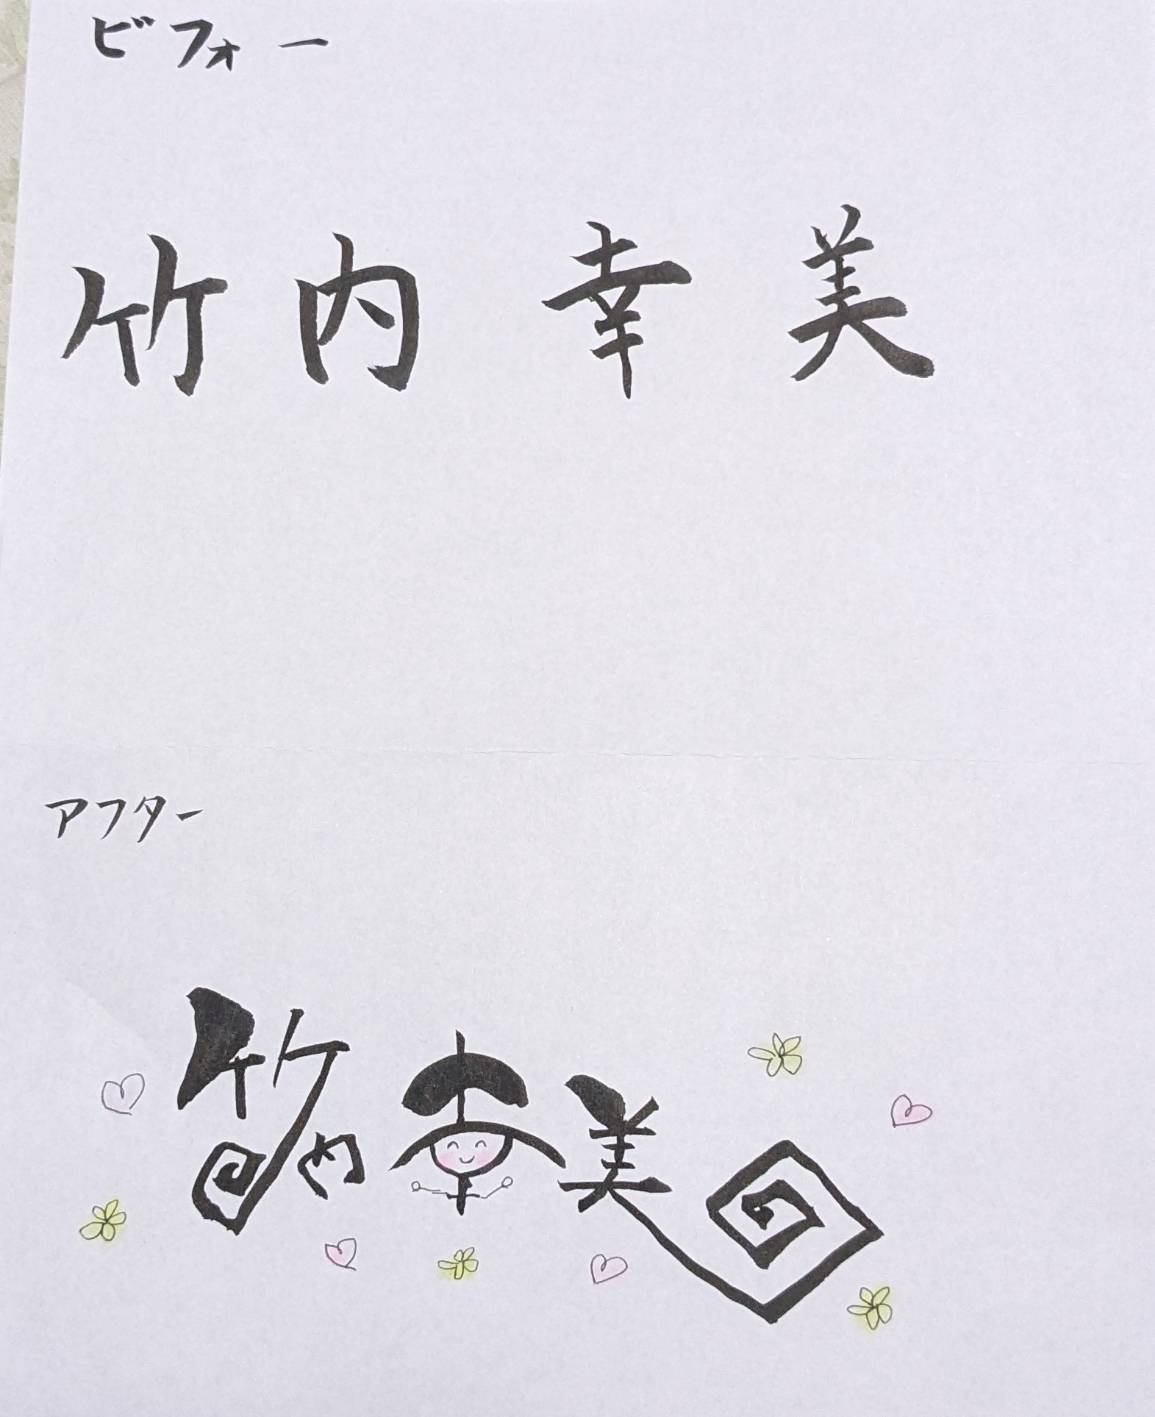 ビフォー
竹内 幸美
アフター
竹内幸美